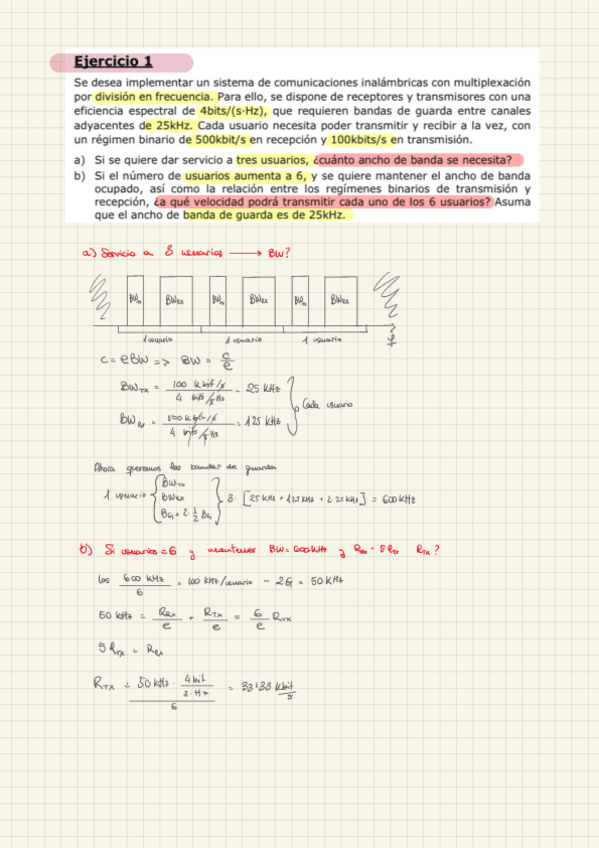 Ejercicio 1
Se desea implementar un sistema de comunicaciones inalámbricas con multiplexación
por división en frecuencia. Para ello, se dispone de receptores y transmisores con una
eficiencia espectral de 4bits/(s·Hz), que requieren bandas de guarda entre canales
adyacentes de 25kHz. Cada usuario necesita poder transmitir y recibir a la vez, con
un régimen binario de 500kbit/s en recepción y 100kbits/s en transmisión.
a) Si se quiere dar servicio a tres usuarios, ¿cuánto ancho de banda se necesita?
b) Si el número de usuarios aumenta a 6, y se quiere mantener el ancho de banda
ocupado, así como la relación entre los regímenes binarios de transmisión y
recepción, ¿a qué velocidad podrá transmitir cada uno de los 6 usuarios? Asuma
que el ancho de banda de guarda es de 25kHz.
a) Servicio a 3 usuarios → BW?
BWTx BWRx BWTx BWRx BWTx BWRx
1 usuario 1 usuario 1 usuario f
C = eBW => BW = C/e
BWTX = 100 kbit/s / 4 bits/s/Hz = 25 kHz
BWRx = 500 kbit/s / 4 bits/s/Hz = 125 kHz
Cada usuario
Ahora queremos las bandas de guarda
1 usuario { BWTx BWRx BG + 2·1/2 BG } 3 · [25 kHz + 125 kHz + 2·25 kHz] = 600 kHz
b) Si usuarios = 6 y mantener BW = 600 kHz y Rrx = 5Rtx RTX?
los 600 kHz / 6 = 100 kHz/usuario - 2G = 50 kHz
50 kHz = RRX/e + RTX/e = 6/e RTX
5 RTX = RRX
RTX = 50 kHz · 4bit/s·Hz / 6 = 33'33 kbit/s